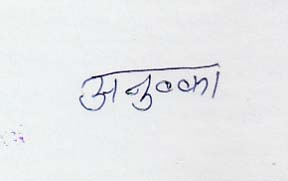 अनुष्का